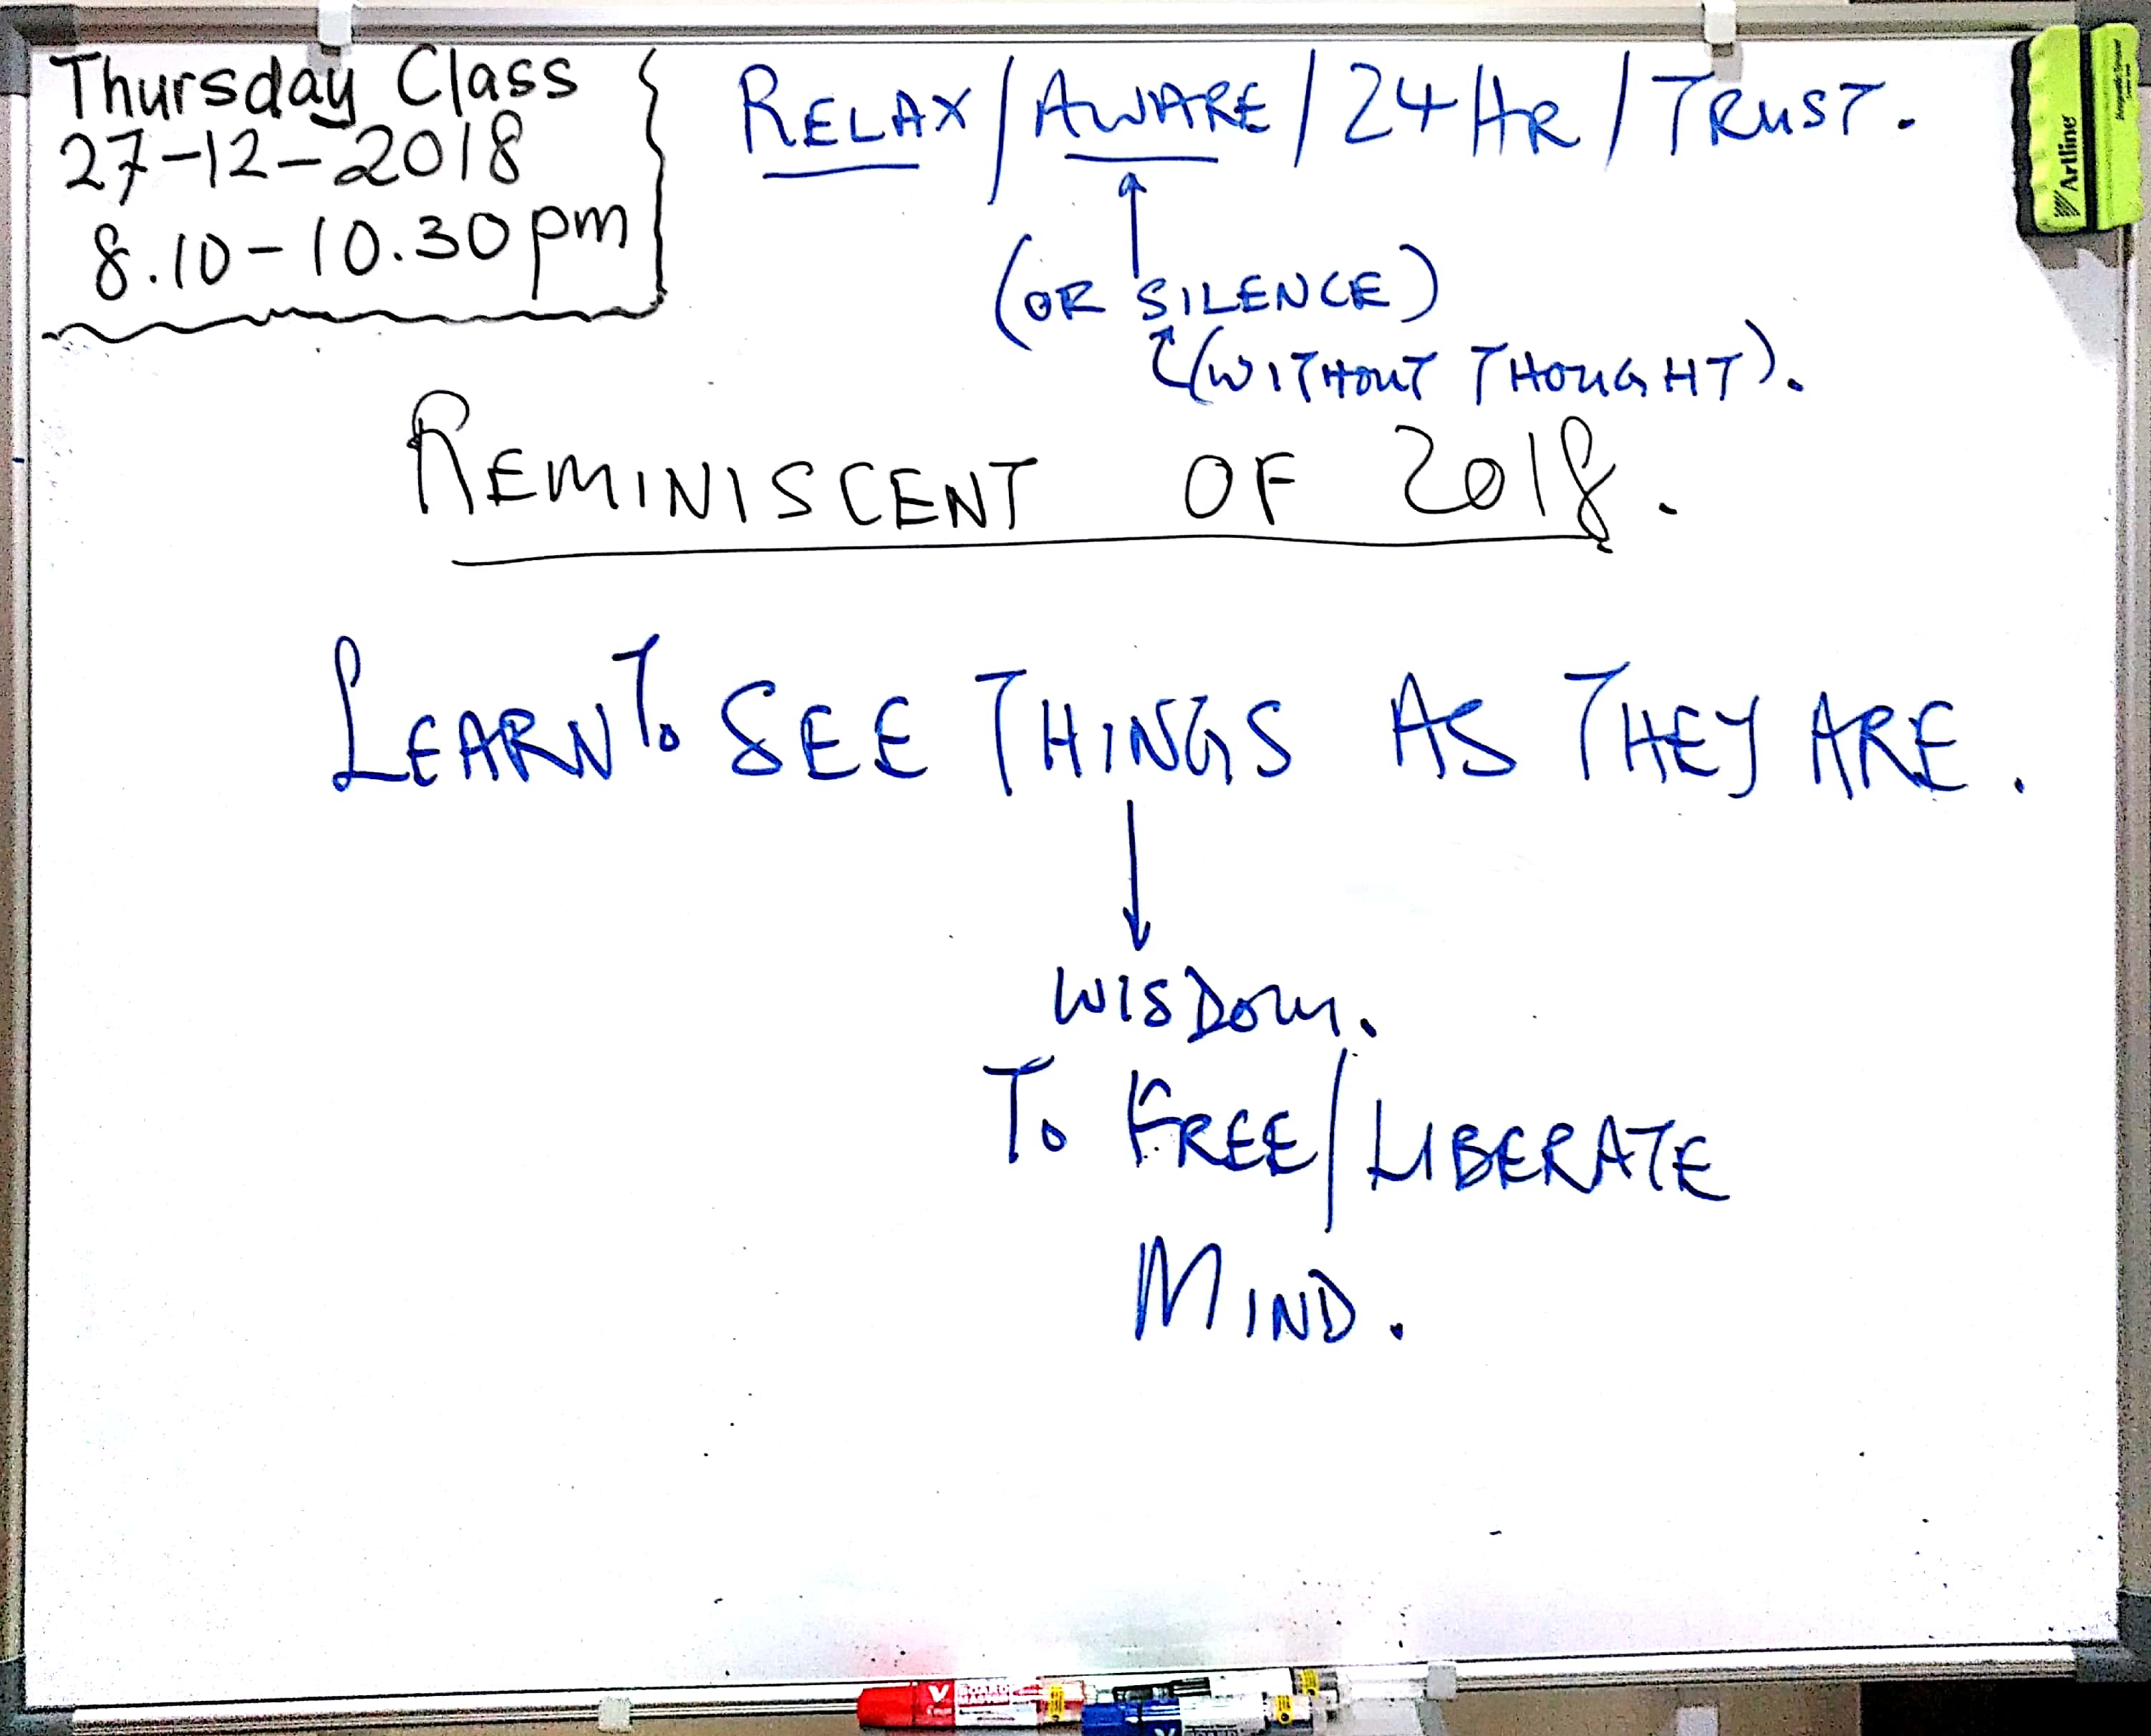 Thursday Class
27-12-2018
8.10-10.30 pm
RELAX/AWARE/24 HR/TRUST.
(OR SILENCE)
(WITHOUT THOUGHT).
REMINISCENT OF 2018.
LEARN TO SEE THINGS AS THEY ARE.
WISDOM.
TO FREE/LIBERATE
MIND.
Artline